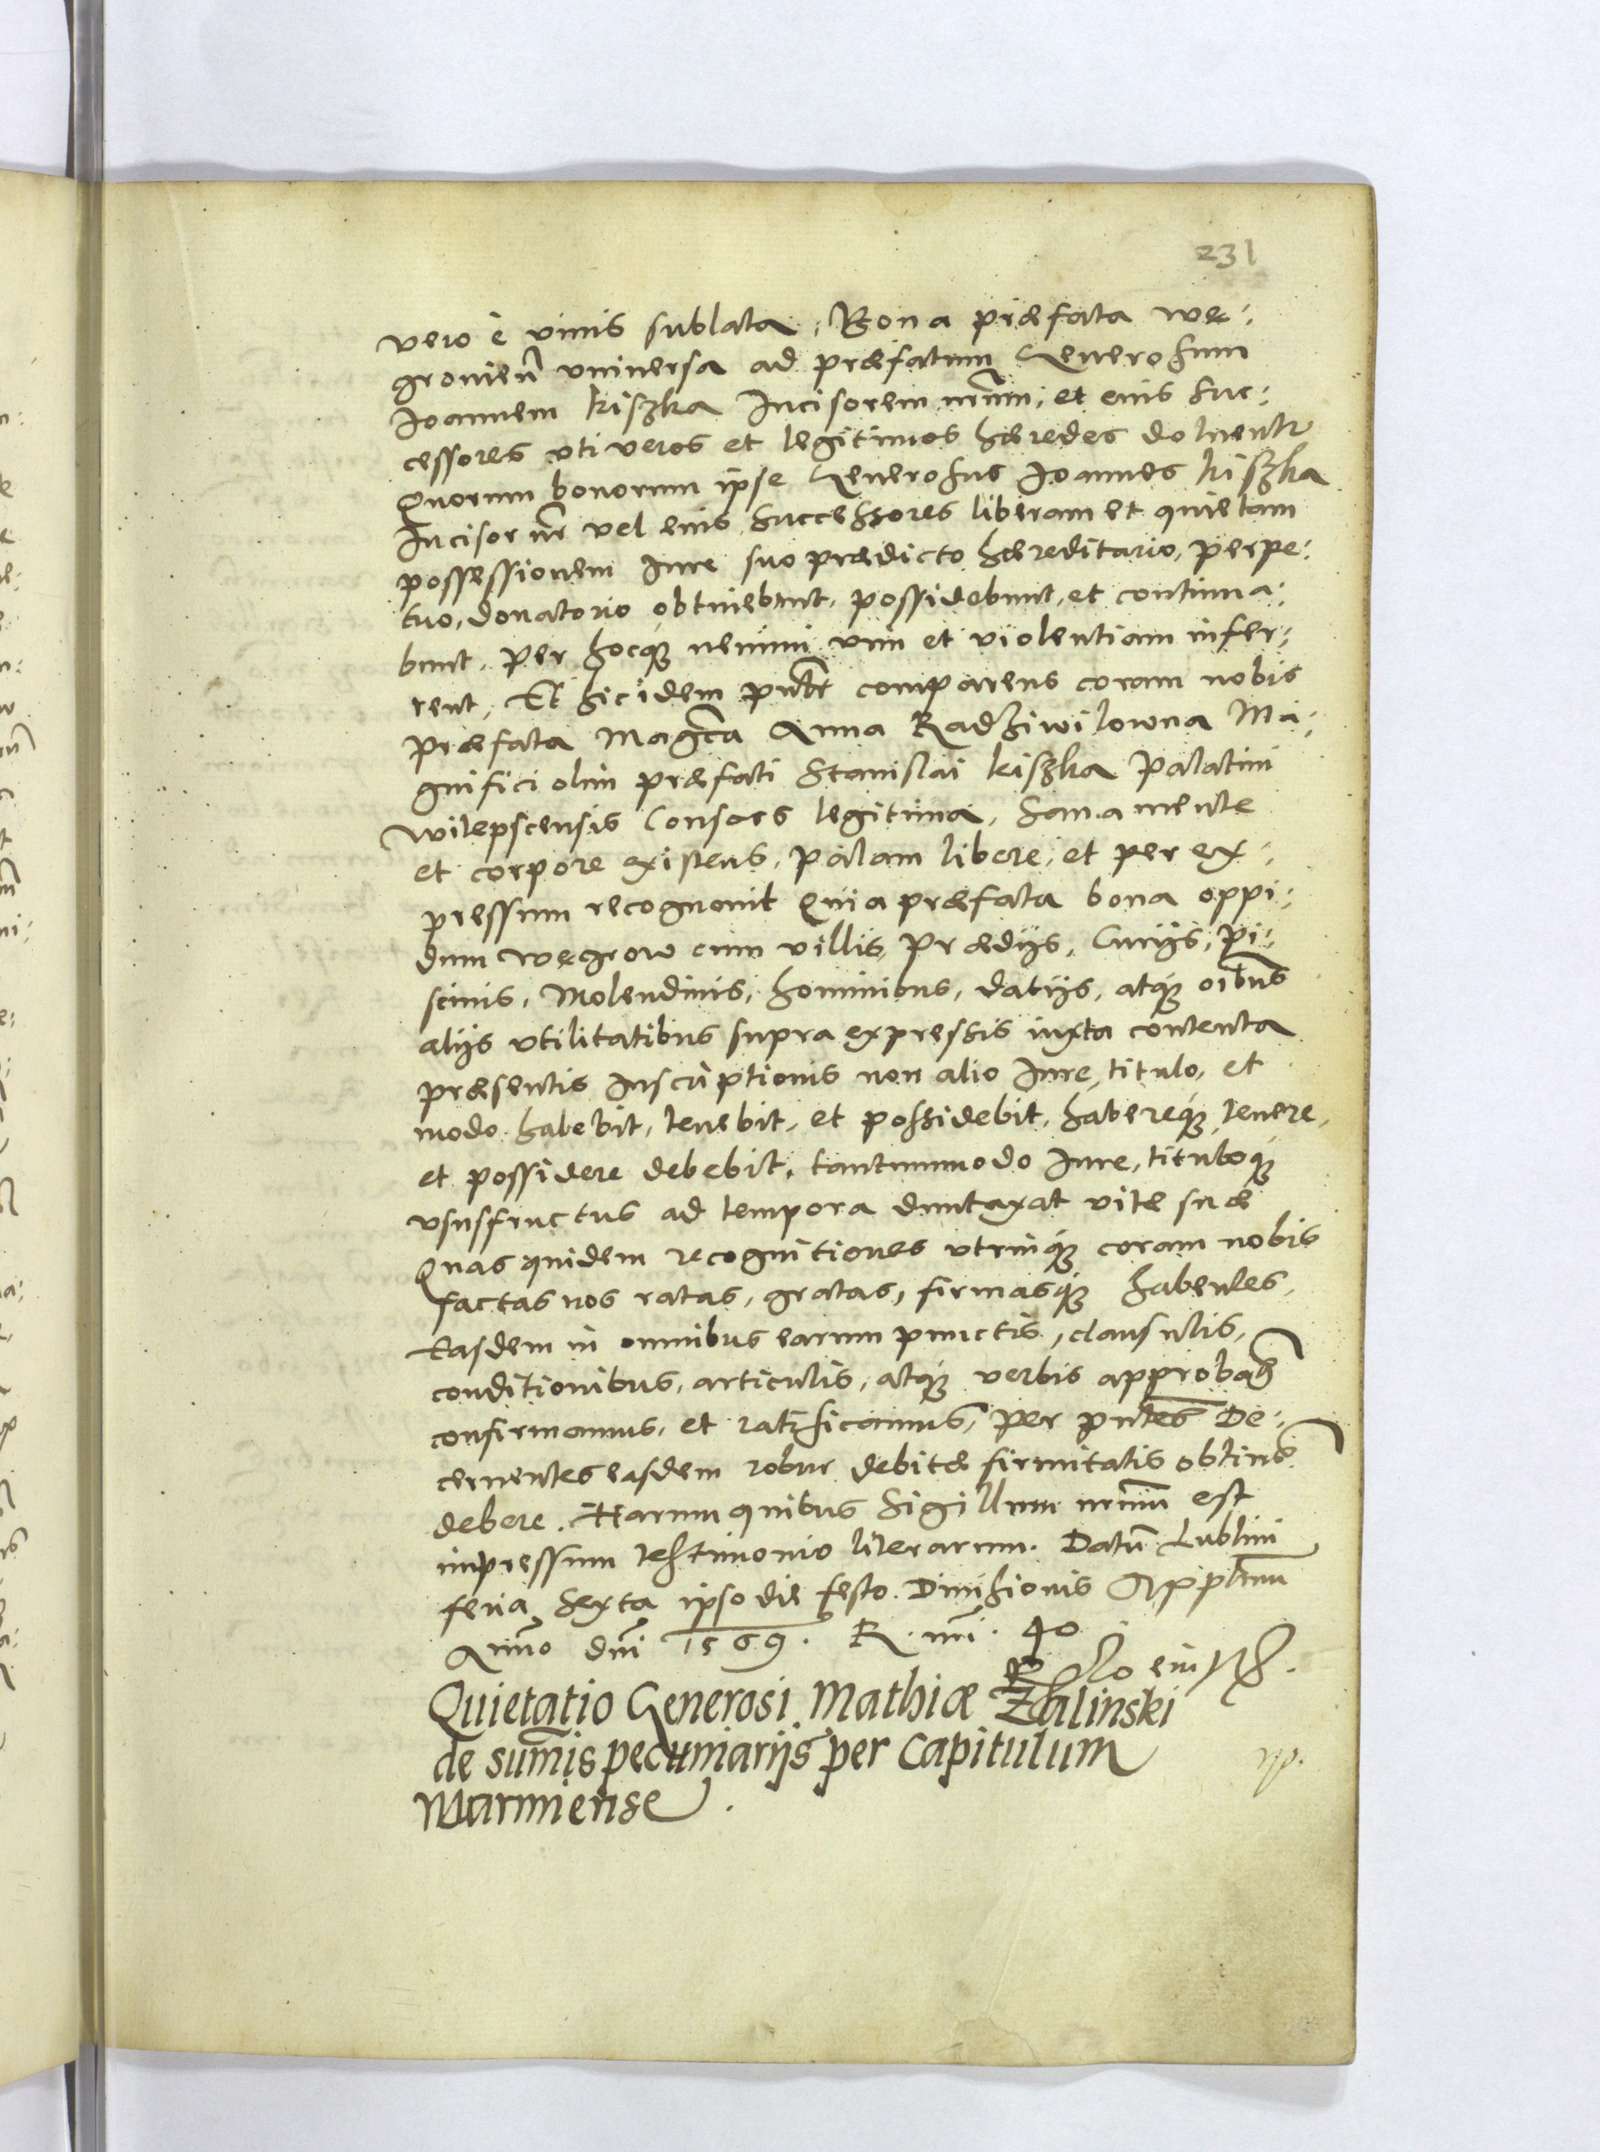 231
vero è vivis sublata, Bona præfata We-
groviеñ universa ad præfatum Generosum
Joannem Kiszka Incisorem nr̃um, et eius suc-
cessores uti veros et legitimos hæredes devolventr
Quorum bonorum ipse Generosus Joannes Kiszka
Incisor nr̃ vel eius successores liberam et quietam
possessionem Jure suo prædicto hæreditario, perpe-
tuo, donatorio obtinebunt, possidebunt, et continua-
bunt. Per hocque nemini vim et violentiam infer-
rent, Et hic idem pnb̃t comparens coram nobis
Præfata Magc̃a Anna Radziwilowna Ma-
gnifici olim præfati Stanislai Kiszka Palatini
Witepscensis Consors legitima, sana mente
et corpore existens, palam libere, et per ex-
pressum recognovit Quia præfata bona oppi-
dum Węgrow cum villis, Prædijs, Curijs, Pi-
scinis, Molendinis, hominibus, datijs, atque oĩbus
alijs utilitatibus supra expressis iuxta contenta
præsentis Inscriptionis non alio Jure, titulo, et
modo habebit, tenebit, et possidebit, habereque, tenere,
et possidere debebit, tantummodo Jure, tituloque
ususfructus ad tempora duntaxat vitæ suæ
Quas quidem recognitiones utrinque coram nobis
factas nos ratas, gratas, firmasque habentes,
Easdem in omnibus earum punctis, clausulis,
conditionibus, articulis, atque verbis approbam̃
confirmamus, et ratificamus, per pñtes De-
cernentes easdem robur debitæ firmitatis obtine
debere. Harum quibus Sigillum nr̃um est
impressum testimonio literarum. Datũ Lublini
feria Sexta ipso die festo Divisionis App̃lorum
Anno dñi 1569. R. nr̃i 40
Quietatio Generosi Mathiæ Zalinski
de sum̃is pecuniarijs per Capitulum
Warmiense.